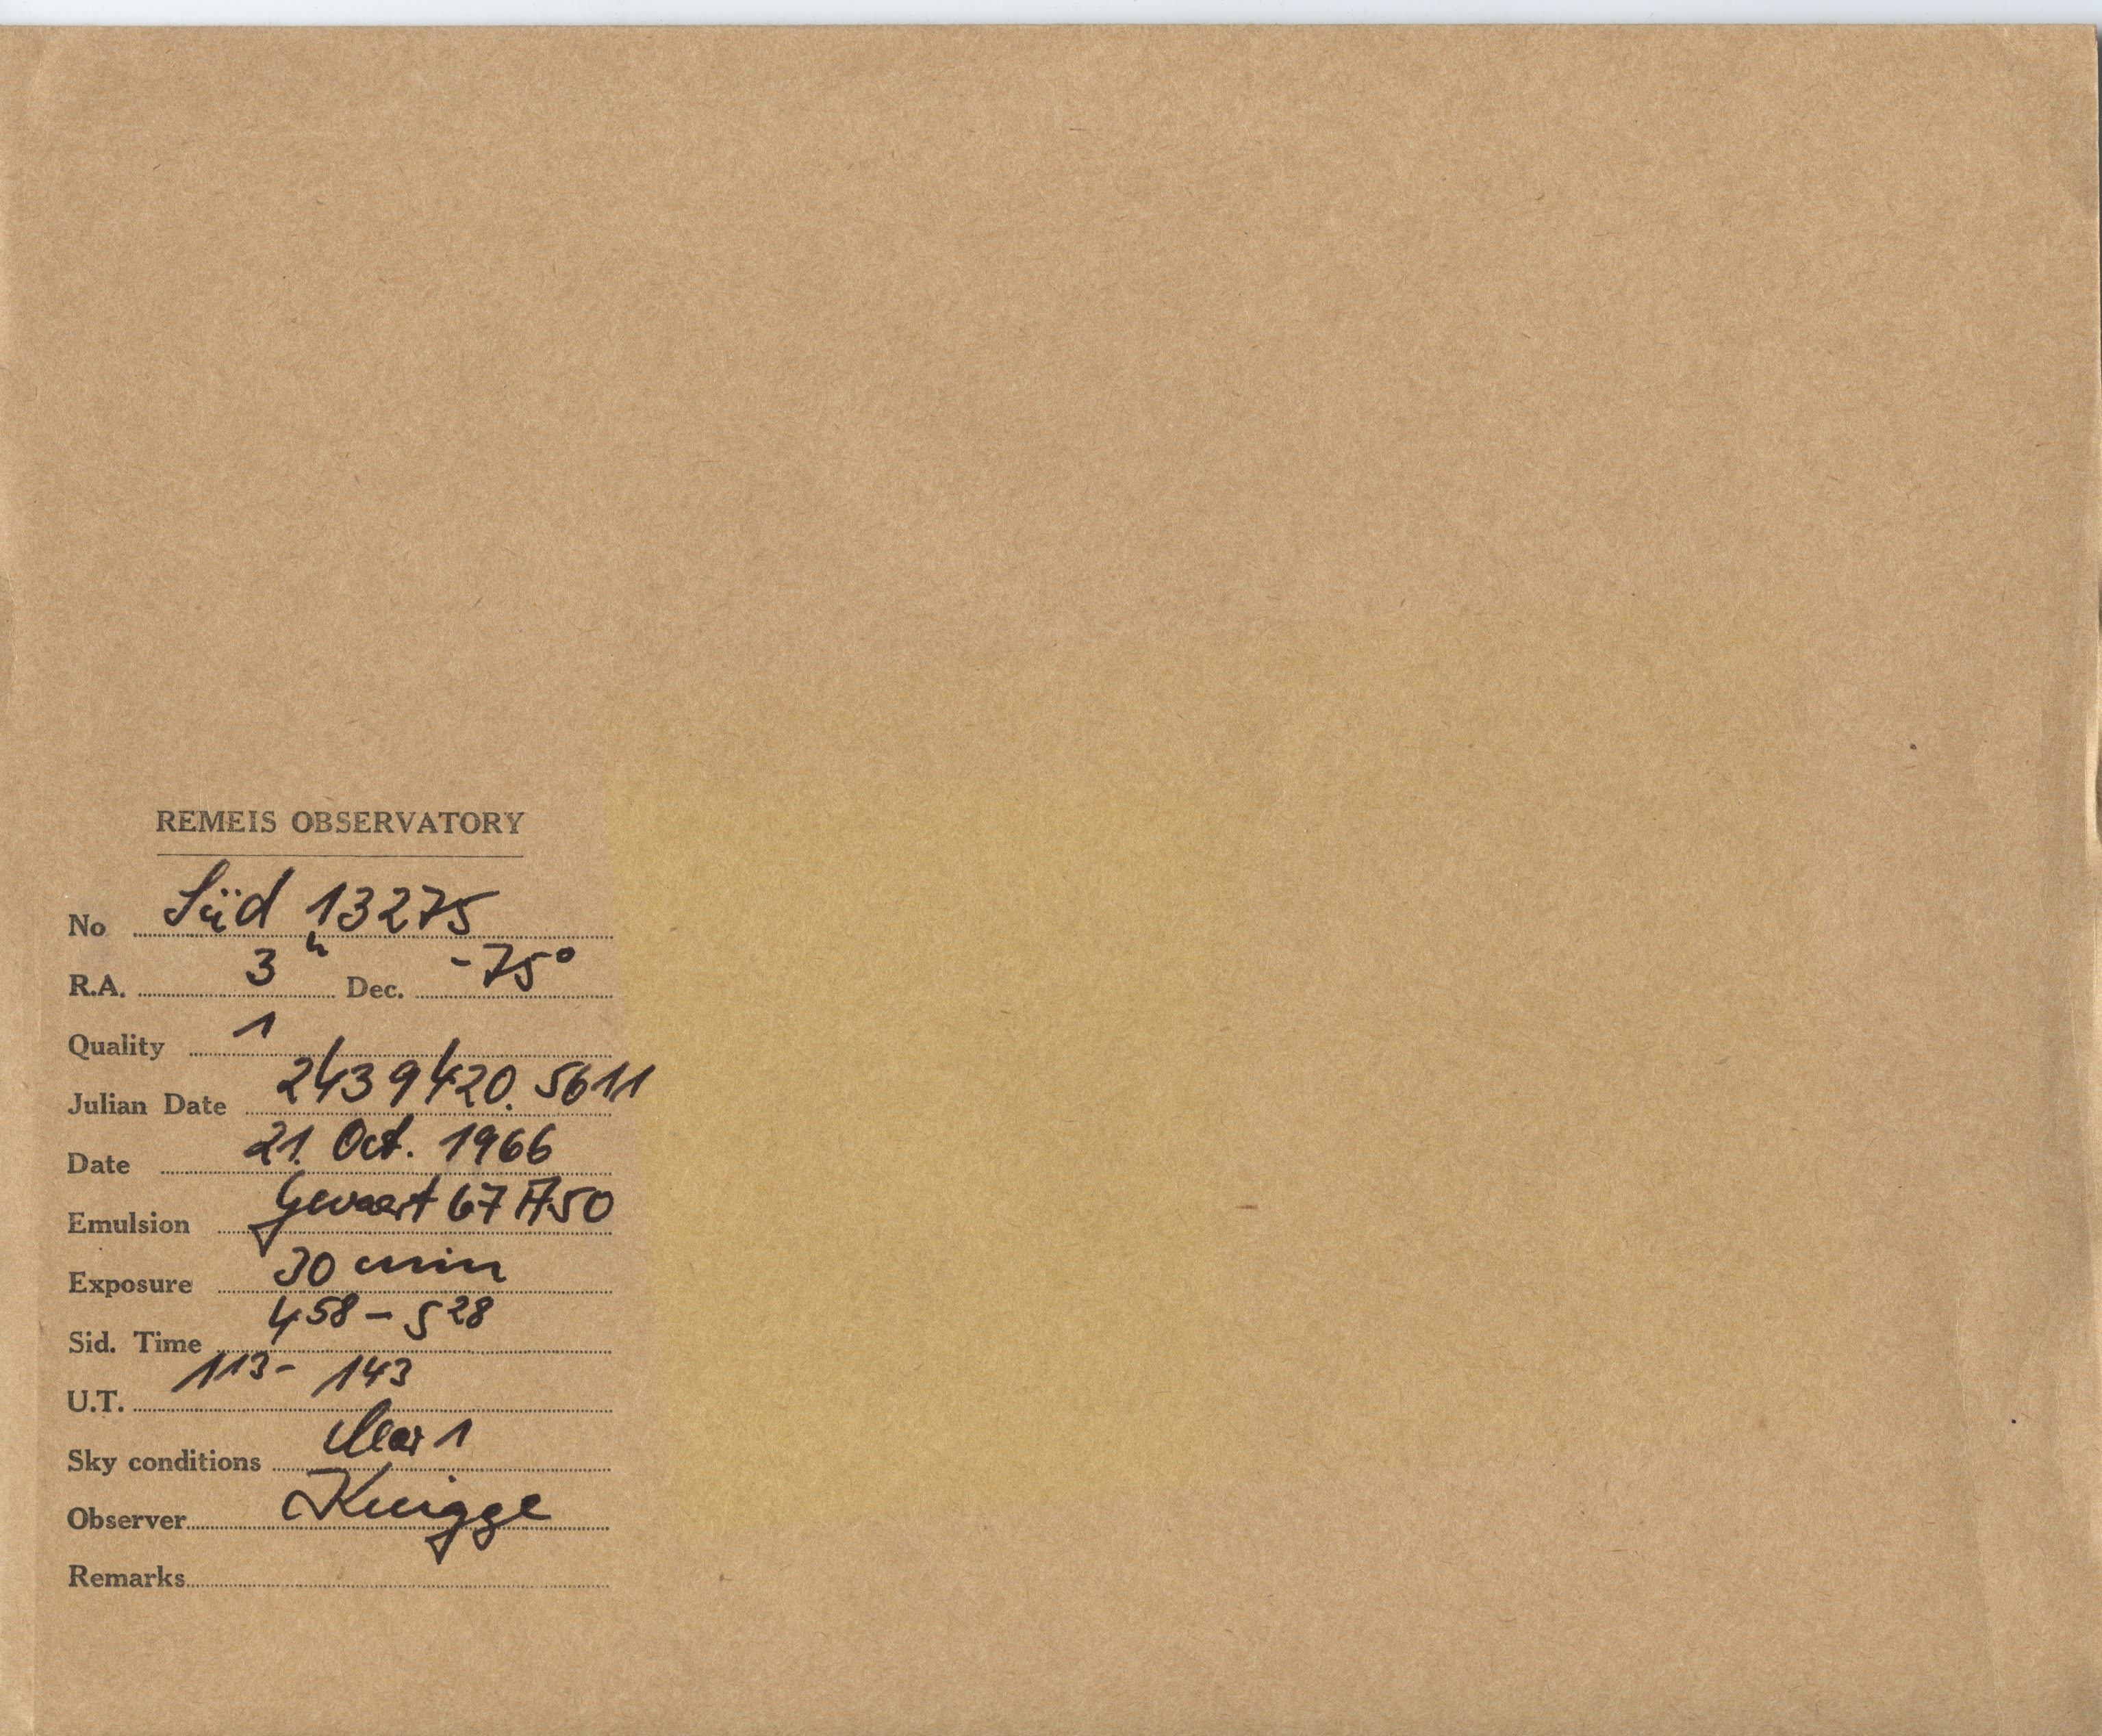 REMEIS OBSERVATORY
No Süd 13275
R.A. 3 h Dec. -75°
Quality 1
Julian Date 2439420.5611
Date 21. Oct. 1966
Emulsion Gevaert 67 A50
Exposure 30 min
Sid. Time 4 58 – 5 28
U.T. 1 13 – 1 43
Sky conditions clear 1
Observer Knigge
Remarks